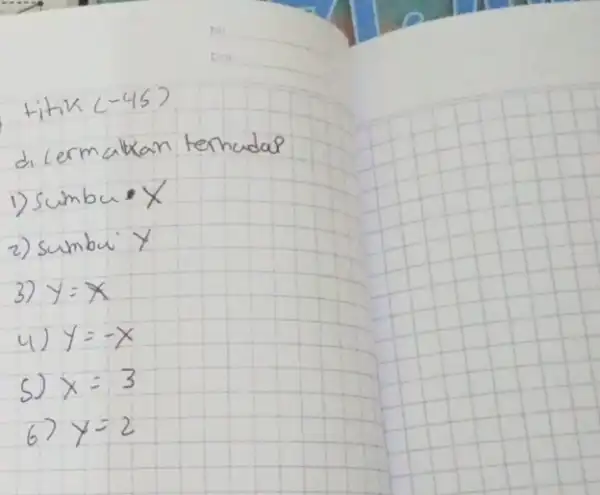 titik (-45)
dicermatkan terhadap
1) sumbu X
2) sumbu Y
3) y = x
4) y = -x
5) x = 3
6) y = 2